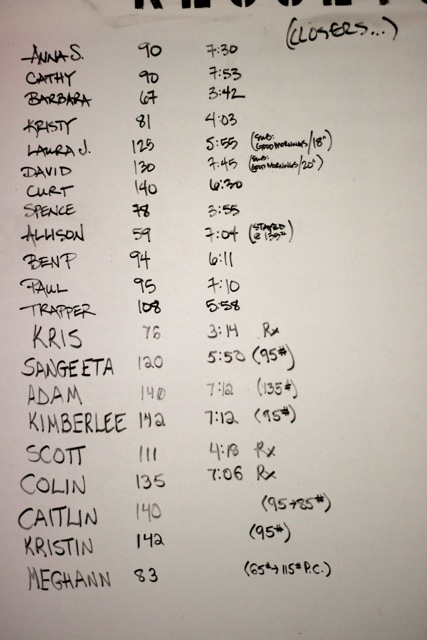 (CLOSERS...)
ANNA S. 90 7:30
CATHY 90 7:53
BARBARA 67 3:42
KRISTY 81 4:03
LAURA J. 125 5:55 (SUB: GOOD MORNINGS/18")
DAVID 130 7:45 (SUB: GOOD MORNINGS/20")
CURT 140 6:30
SPENCE 78 3:55
ALLISON 59 7:04 (STAYED @ 135#)
BEN P 94 6:11
PAUL 95 7:10
TRAPPER 108 5:58
KRIS 76 3:14 Rx
SANGEETA 120 5:50 (95#)
ADAM 140 7:12 (135#)
KIMBERLEE 142 7:12 (95#)
SCOTT 111 4:18 Rx
COLIN 135 7:06 Rx
CAITLIN 140 (95→85#)
KRISTIN 142 (95#)
MEGHANN 83 (65#→115# P.C.)